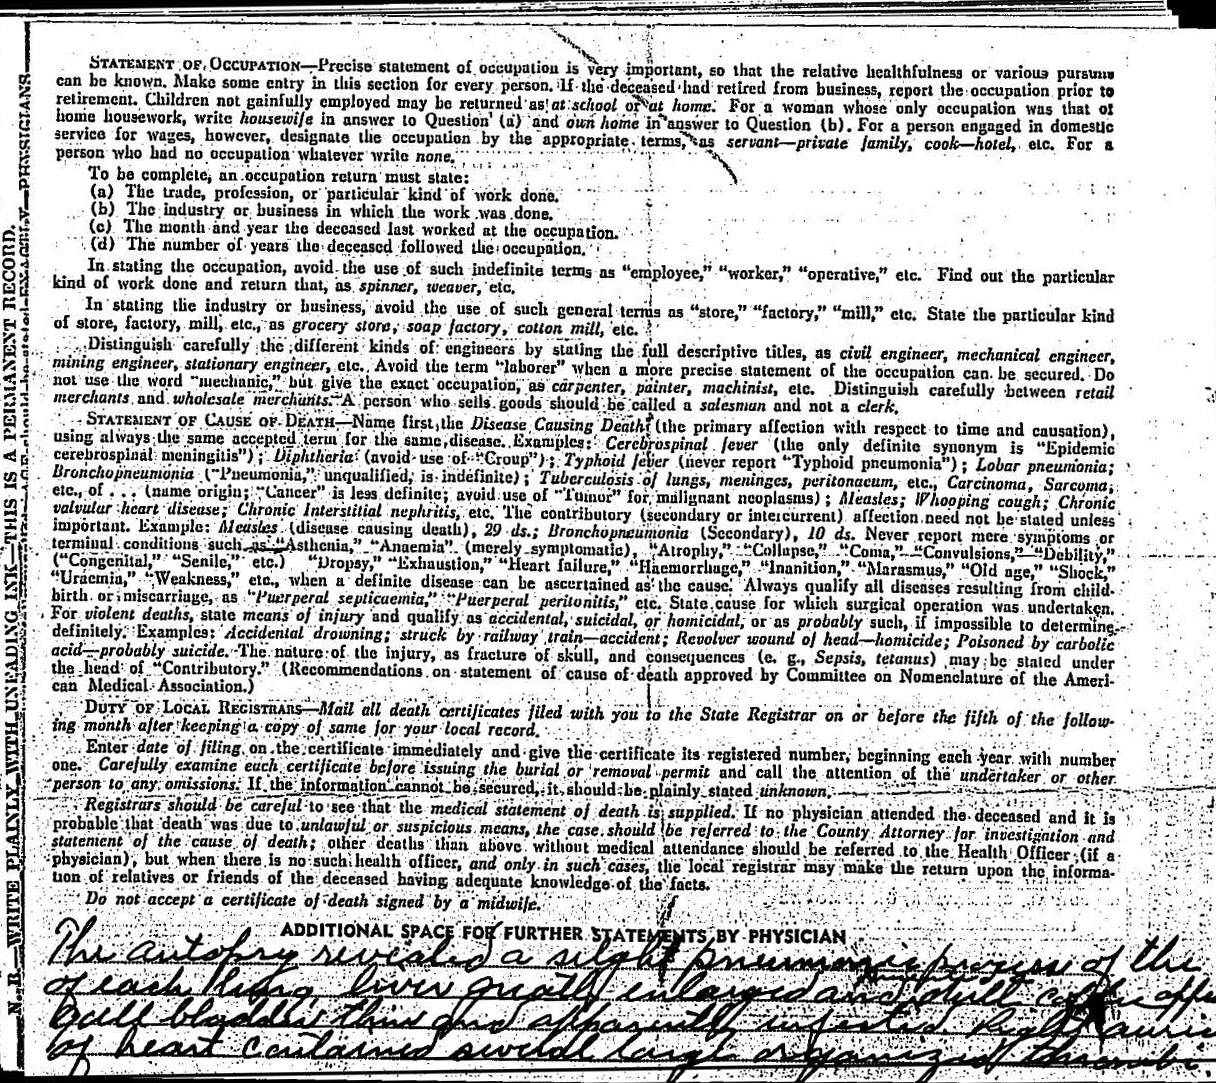 STATEMENT OF OCCUPATION—Precise statement of occupation is very important, so that the relative healthfulness or various pursuits
can be known. Make some entry in this section for every person. If the deceased had retired from business, report the occupation prior to
retirement. Children not gainfully employed may be returned as at school or at home. For a woman whose only occupation was that of
home housework, write housewife in answer to Question (a) and own home in answer to Question (b). For a person engaged in domestic
service for wages, however, designate the occupation by the appropriate terms, as servant—private family, cook—hotel, etc. For a
person who had no occupation whatever write none.
To be complete, an occupation return must state:
(a) The trade, profession, or particular kind of work done.
(b) The industry or business in which the work was done.
(c) The month and year the deceased last worked at the occupation.
(d) The number of years the deceased followed the occupation.
In stating the occupation, avoid the use of such indefinite terms as “employee,” “worker,” “operative,” etc. Find out the particular
kind of work done and return that, as spinner, weaver, etc.
In stating the industry or business, avoid the use of such general terms as “store,” “factory,” “mill,” etc. State the particular kind
of store, factory, mill, etc., as grocery store, soap factory, cotton mill, etc.
Distinguish carefully the different kinds of engineers by stating the full descriptive titles, as civil engineer, mechanical engineer,
mining engineer, stationary engineer, etc. Avoid the term “laborer” when a more precise statement of the occupation can be secured. Do
not use the word “mechanic,” but give the exact occupation, as carpenter, painter, machinist, etc. Distinguish carefully between retail
merchants and wholesale merchants. A person who sells goods should be called a salesman and not a clerk.
STATEMENT OF CAUSE OF DEATH—Name first, the Disease Causing Death (the primary affection with respect to time and causation),
using always the same accepted term for the same disease. Examples: Cerebrospinal fever (the only definite synonym is “Epidemic
cerebrospinal meningitis”); Diphtheria (avoid use of “Croup”); Typhoid fever (never report “Typhoid pneumonia”); Lobar pneumonia;
Bronchopneumonia (“Pneumonia,” unqualified, is indefinite); Tuberculosis of lungs, meninges, peritonaeum, etc., Carcinoma, Sarcoma,
etc., of . . . (name origin; “Cancer” is less definite; avoid use of “Tumor” for malignant neoplasms); Measles; Whooping cough; Chronic
valvular heart disease; Chronic Interstitial nephritis, etc. The contributory (secondary or intercurrent) affection need not be stated unless
important. Example: Measles (disease causing death), 29 ds.; Bronchopneumonia (Secondary), 10 ds. Never report mere symptoms or
terminal conditions such as “Asthenia,” “Anaemia” (merely symptomatic), “Atrophy,” “Collapse,” “Coma,” “Convulsions,” “Debility,”
(“Congenital,” “Senile,” etc.) “Dropsy,” “Exhaustion,” “Heart failure,” “Haemorrhage,” “Inanition,” “Marasmus,” “Old age,” “Shock,”
“Uraemia,” “Weakness,” etc., when a definite disease can be ascertained as the cause. Always qualify all diseases resulting from child-
birth or miscarriage, as “Puerperal septicaemia,” “Puerperal peritonitis,” etc. State cause for which surgical operation was undertaken.
For violent deaths, state means of injury and qualify as accidental, suicidal, or homicidal, or as probably such, if impossible to determine
definitely. Examples: Accidental drowning; struck by railway train—accident; Revolver wound of head—homicide; Poisoned by carbolic
acid—probably suicide. The nature of the injury, as fracture of skull, and consequences (e. g., Sepsis, tetanus) may be stated under
the head of “Contributory.” (Recommendations on statement of cause of death approved by Committee on Nomenclature of the Ameri-
can Medical Association.)
DUTY OF LOCAL REGISTRARS—Mail all death certificates filed with you to the State Registrar on or before the fifth of the follow-
ing month after keeping a copy of same for your local record.
Enter date of filing on the certificate immediately and give the certificate its registered number, beginning each year with number
one. Carefully examine each certificate before issuing the burial or removal permit and call the attention of the undertaker or other
person to any omissions. If the information cannot be secured, it should be plainly stated unknown.
Registrars should be careful to see that the medical statement of death is supplied. If no physician attended the deceased and it is
probable that death was due to unlawful or suspicious means, the case should be referred to the County Attorney for investigation and
statement of the cause of death; other deaths than above without medical attendance should be referred to the Health Officer (if a
physician), but when there is no such health officer, and only in such cases, the local registrar may make the return upon the informa-
tion of relatives or friends of the deceased having adequate knowledge of the facts.
Do not accept a certificate of death signed by a midwife.
ADDITIONAL SPACE FOR FURTHER STATEMENTS BY PHYSICIAN
The autopsy revealed a slight pneumonic process of the
of each lung, liver greatly enlarged and
Gall bladder thin and apparently infected. Right auric
of heart contained several large organized thrombi.
N. B.—WRITE PLAINLY WITH UNFADING INK—THIS IS A PERMANENT RECORD.
PHYSICIANS